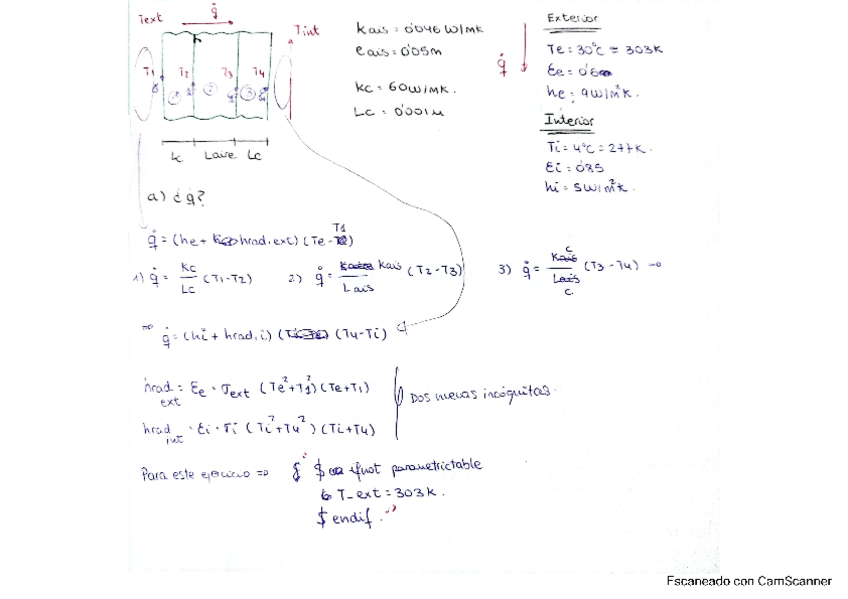 Text q̇ Tint
T1 T2 T3 T4
1 2 3
Lc Laire Lc
kais = 0'046 W/mk
eais = 0'05m
kc = 60 W/mk.
Lc = 0'001m
q̇
Exterior
Te = 30°C = 303K
Ee = 0'6
he = 9W/m²k.
Interior
Ti = 4°C = 277K.
Ei = 0'85
hi = 5W/m²k.
a) ¿q̇?
q̇ = (he + hrad,ext) (Te - T1)
1) q̇ = kc/Lc (T1-T2) 2) q̇ = kais/Lais (T2-T3) 3) q̇ = kc/Lc (T3-T4) →
⇒ q̇ = (hi + hrad,i) (T4-Ti)
hrad ext = Ee · σext (Te²+T1²)(Te+T1)
hrad int = Ei · σi (Ti²+T4²)(Ti+T4)
Dos nuevas incógnitas.
Para este ejercicio ⇒ { " $ ifnot parametrictable
T_ext = 303K.
$ endif. "
Escaneado con CamScanner